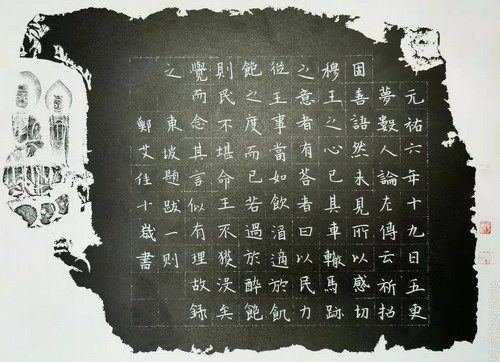 元祐六年十九日五更
夢數人論左傳云祈招
固善語然未見所以感切
穆王之心已其車轍馬跡
之意者有答者曰以民力
從王事當如飲酒適於飢
飽之度而已若過於醉飽
則民不堪命王不獲沒矣
覺而念其言似有理故録
之 東坡題跋一則
鄭艾佳十歲書